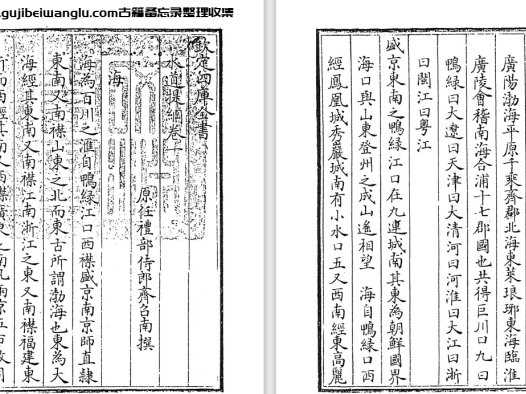 .gujibeiwanglu.com古籍备忘录整理收集
欽定四庫全書
水道提綱卷一
原任禮部侍郎齊召南撰
海
海為百川之滙自鴨緑江口西襟盛京南京師直隸
東南又南襟山東之北而東古所謂渤海也東為大
海經其東南又南襟江南浙江之東又南襟福建東
廣陽渤海平原千乗齊郡北海東萊琅琊東海臨淮
廣陵會稽南海合浦十七郡國也共得巨川口九曰
鴨緑曰大遼曰天津曰大清河曰河淮曰大江曰浙
曰閩江曰粤江
盛京東南之鴨緑江口在九連城南其東為朝鮮國界
海口與山東登州之成山遙相望 海自鴨緑口西
經鳳凰城秀巖城南有小水口五又西南經東高麗